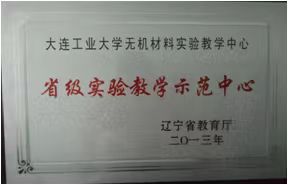 大连工业大学无机材料实验教学中心
省级实验教学示范中心
辽宁省教育厅
二〇一三年